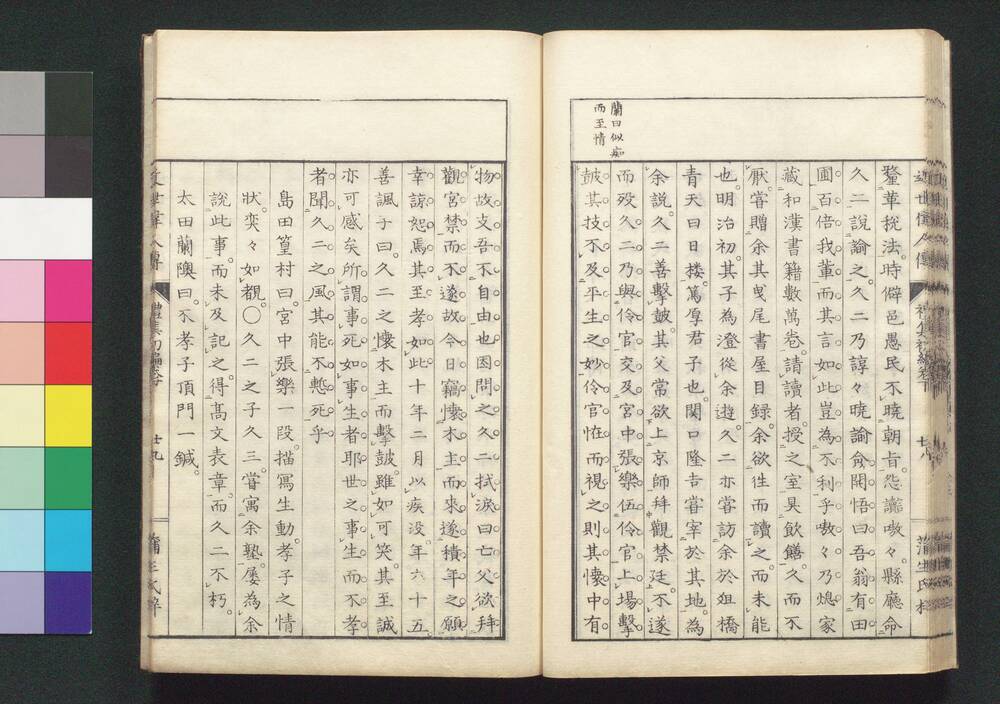 蘭曰似癡
而至情
釐革稅法。時僻邑愚民不曉朝旨。怨讟嗷々。縣廳命
久二說諭之。久二乃諄々曉諭僉開悟曰吾翁有田
圃百倍我輩。而其言如此豈為不利乎嗷々乃熄。家
藏和漢書籍數萬卷。請讀者。授之室具飲饍。久而不
厭。嘗贈余其曳尾書屋目録。余欲徃而讀之。而未能
也。明治初。其子為澄從余遊。久二亦嘗訪余於俎橋
青天白日樓。篤厚君子也。關口隆吉嘗宰於其地。為
余說。久二善擊皷。其父常欲上京師拜觀禁廷。不遂
而歿。久二乃與伶官交。及宮中張樂。伍伶官上場擊
皷。其技不及平生之妙。伶官恠而視之。則其懷中有
物。故支吾不自由也。因問之。久二拭淚曰亡父欲拜
觀宮禁而不遂。故今日竊懷木主而來。遂積年之願
幸請恕焉。其至孝如此。十年二月以疾没。年六十五。
善諷子曰。久二之懷木主而擊皷。雖如可笑。其至誠
亦可感矣。所謂事死如事生者耶。世之事生而不孝
者。聞久二之風。其能不慙死乎
島田篁村曰。宮中張樂一段。描寫生動。孝子之情
狀奕々如覩。〇久二之子久三。嘗寓余塾。屢為余
說此事。而未及記之。得高文表章。而久二不朽。
太田蘭陂曰。不孝子頂門一鍼。